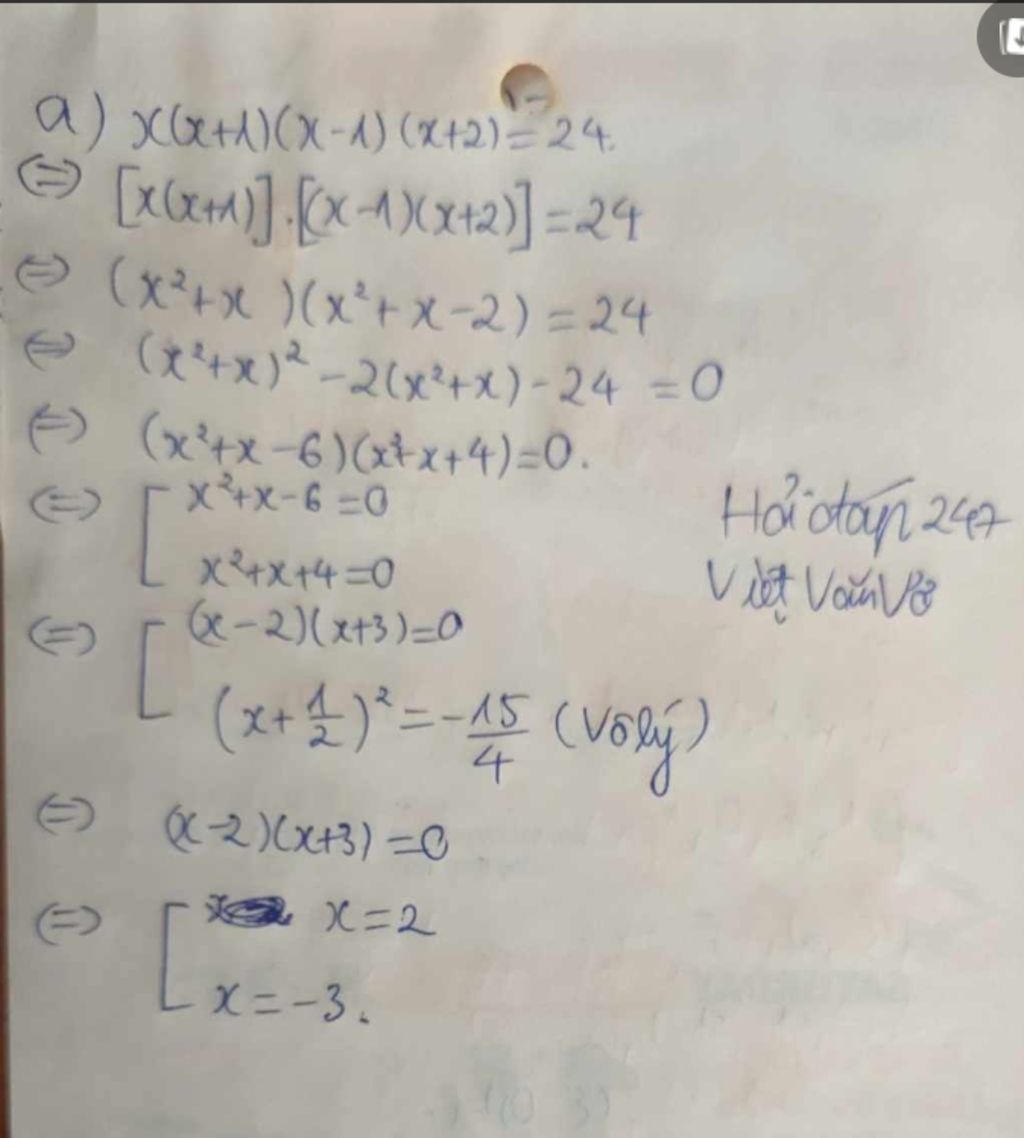 a) x(x+1)(x-1)(x+2)=24.
⇔ [x(x+1)].[(x-1)(x+2)]=24
⇔ (x²+x)(x²+x-2)=24
⇔ (x²+x)²-2(x²+x)-24=0
⇔ (x²+x-6)(x²+x+4)=0.
⇔ [ x²+x-6=0
x²+x+4=0
Hỏi đáp 247
Việt Văn Vở
⇔ [ (x-2)(x+3)=0
(x+1/2)²=-15/4 (Vô lý)
⇔ (x-2)(x+3)=0
⇔ [ x=2
x=-3.